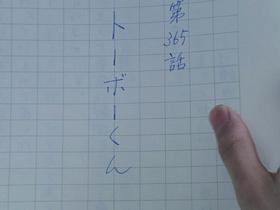 第365話
トーボーくん